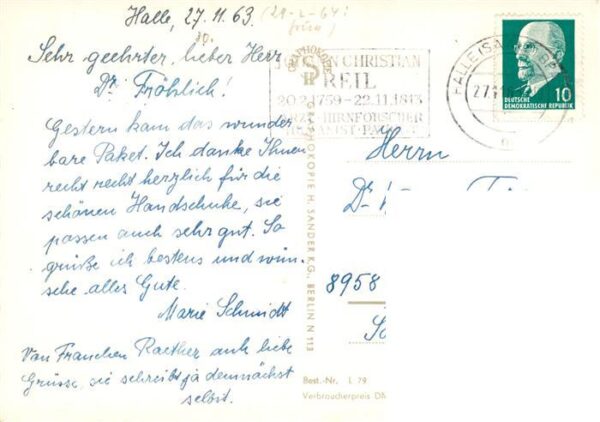 Halle, 27.11.63 (29-2-64:
Sehr geehrter, lieber Herr
Dr. Fröhlich!
Gestern kam das wunder
bare Paket. Ich danke Ihnen
recht recht herzlich für die
schönen Handschuhe, sie
passen auch sehr gut. So
grüße ich bestens und wün
sche alles Gute.
Marie Schmidt
Von Frauchen Raether auch liebe
Grüsse, sie schreibt ja demnächst
selbst.
GRAPHOKOPIE
H S
GRAPHOKOPIE H. SANDER K.G., BERLIN N 113
CHRISTIAN
REIL
20.2.1759-22.11.1813
HIRNFORSCHER
HALLE (SAALE)
27.11
10
DEUTSCHE
DEMOKRATISCHE REPUBLIK
Herrn
Dr.
8958
Best.-Nr. L 79
Verbraucherpreis DM